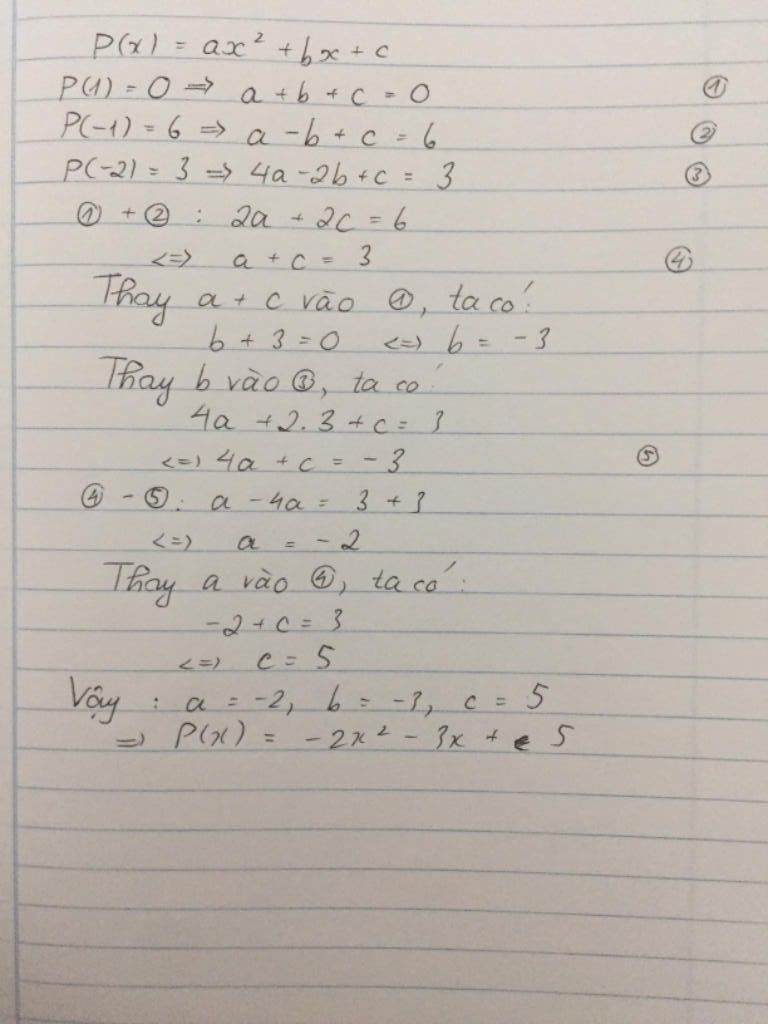 P(x) = ax² + bx + c
P(1) = 0 => a + b + c = 0 ①
P(-1) = 6 => a - b + c = 6 ②
P(-2) = 3 => 4a - 2b + c = 3 ③
① + ② : 2a + 2c = 6
<=> a + c = 3 ④
Thay a + c vào ①, ta có:
b + 3 = 0 <=> b = -3
Thay b vào ③, ta có:
4a + 2.3 + c = 3
<=> 4a + c = -3 ⑤
④ - ⑤: a - 4a = 3 + 3
<=> a = -2
Thay a vào ④, ta có:
-2 + c = 3
<=> c = 5
Vậy : a = -2, b = -3, c = 5
=> P(x) = -2x² - 3x + 5